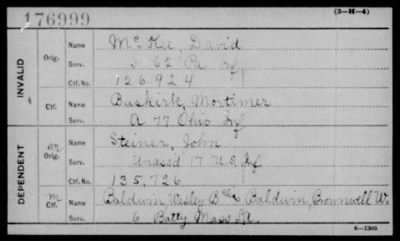 176999
(3-H-4)
INVALID
Orig.
Name McKee, David
Serv. 62 Pa Inf
Ctf. No. 126,924
Ctf.
Name Buskirk, Mortimer
Serv. A 77 Ohio Inf
DEPENDENT
M
Orig.
Name Steiner, John
Serv. Unassd 17 U.S. Inf
Ctf. No. 135,726
M
Ctf.
Name Baldwin, Wesley Baldwin, Bromwell W.
Serv. 6 Batty Mass
6-1305